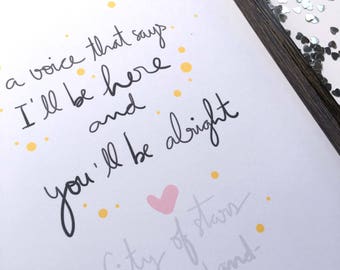 a voice that says
I'll be here
and
you'll be alright
City of stars